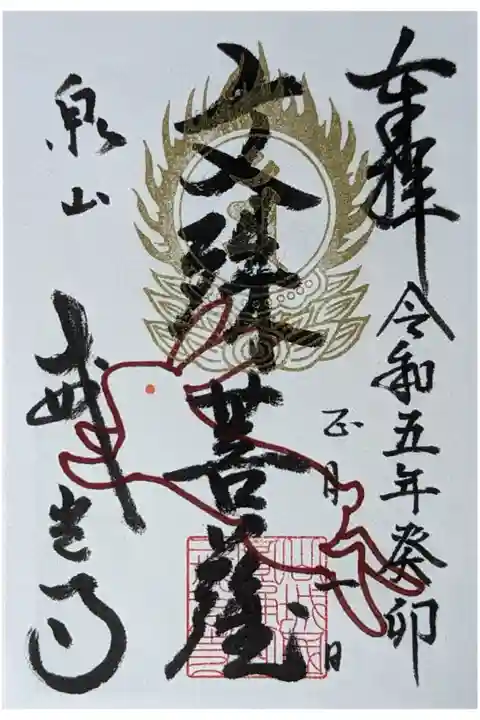 奉拝
令和五年癸卯
正月 日
文殊菩薩
泉山
戒光寺